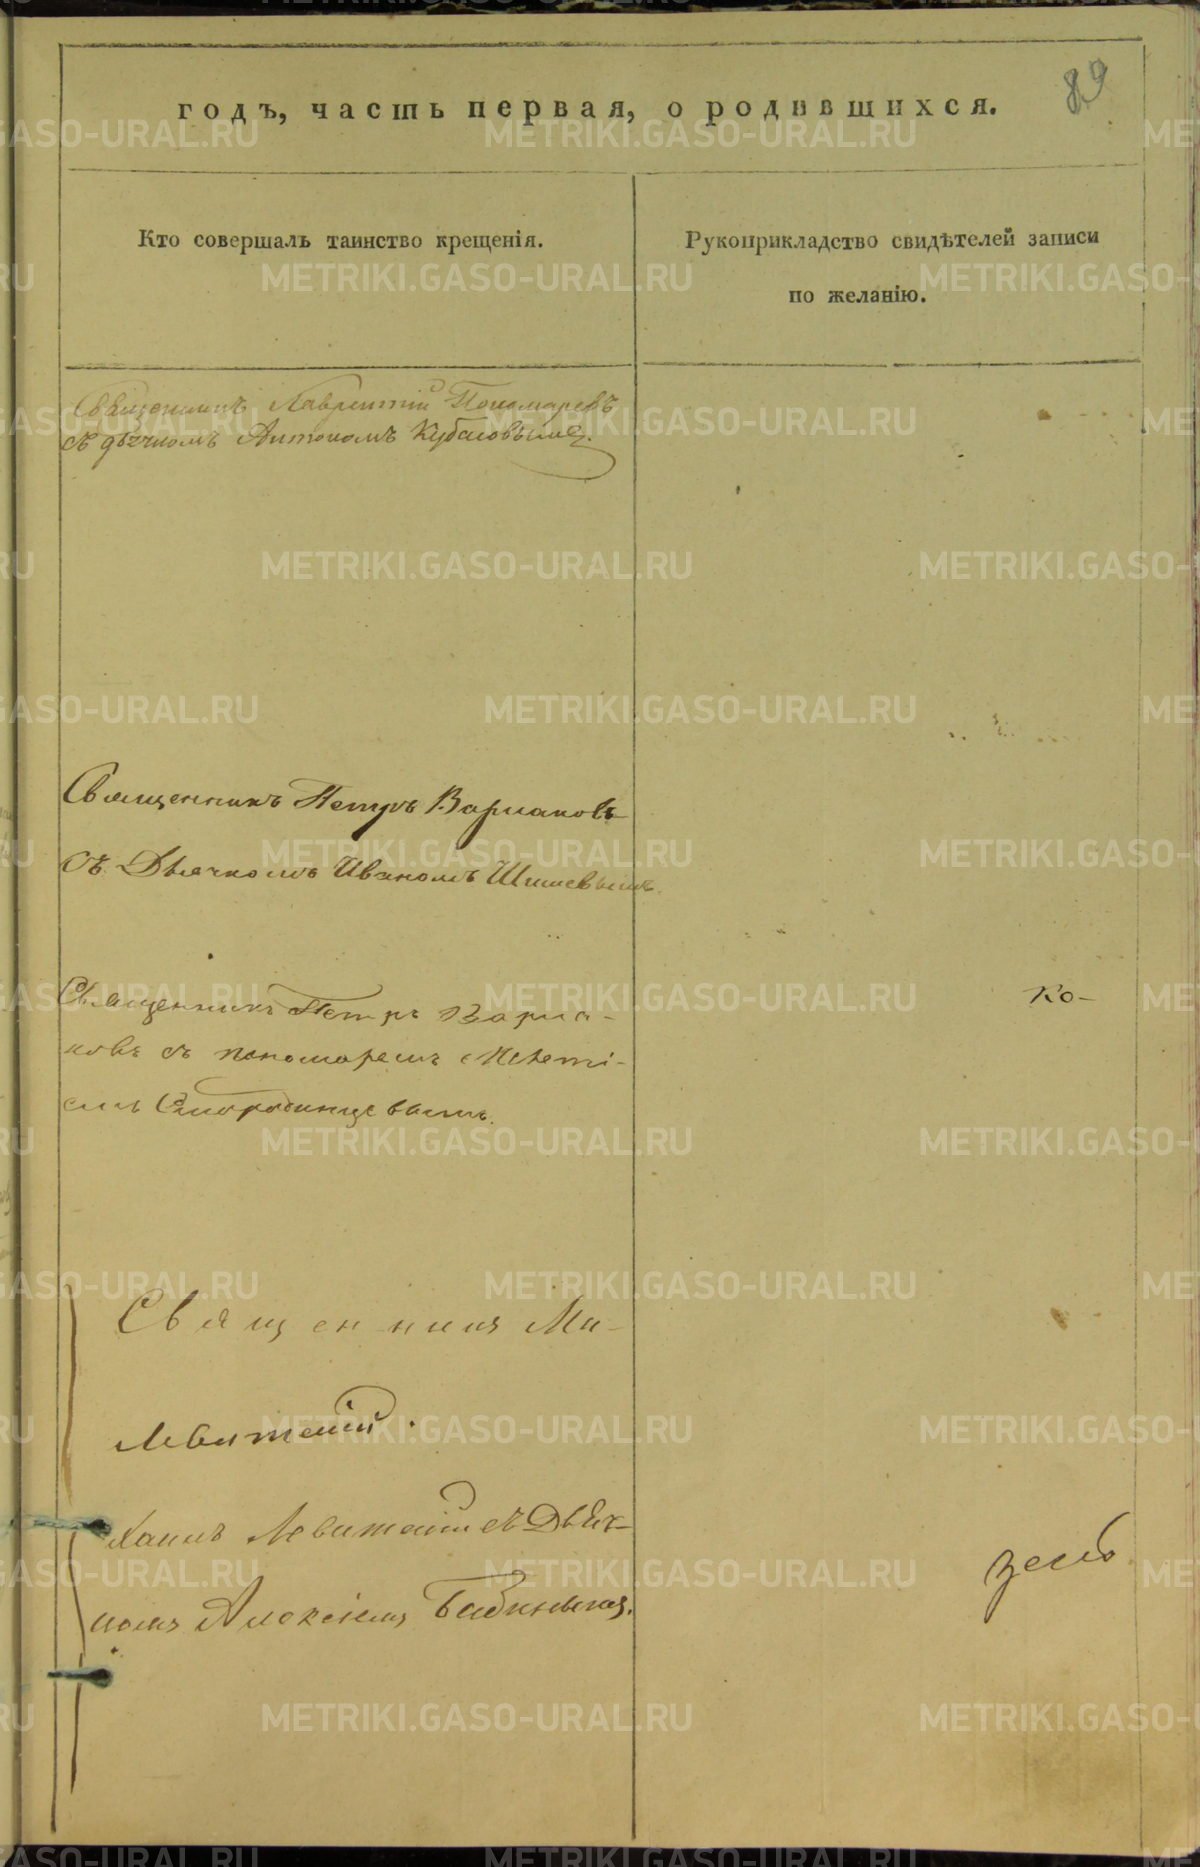 89
годъ, часть первая, о родившихся.
Кто совершалъ таинство крещенія.
Рукоприкладство свидѣтелей записи
по желанію.
Священникъ Лаврентій Пономаревъ
съ дьячкомъ Антономъ Кубасовымъ.
Священникъ Петръ Вармаковъ
съ Дьячкомъ Иваномъ Шишевымъ
Священникъ Петръ Варма-
ковъ съ пономаремъ
емъ Смородинцевымъ.
Ко-
Священникъ Ми-
Левитскій.
хаилъ Левитскій съ Дьяч-
комъ Алексіемъ
METRIKI.GASO-URAL.RU